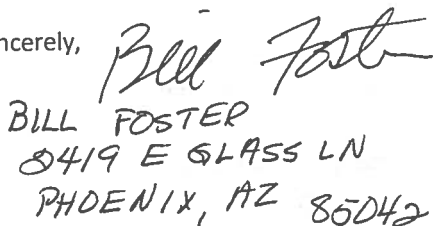 ncerely, Bill Foster
BILL FOSTER
2419 E GLASS LN
PHOENIX, AZ 85042